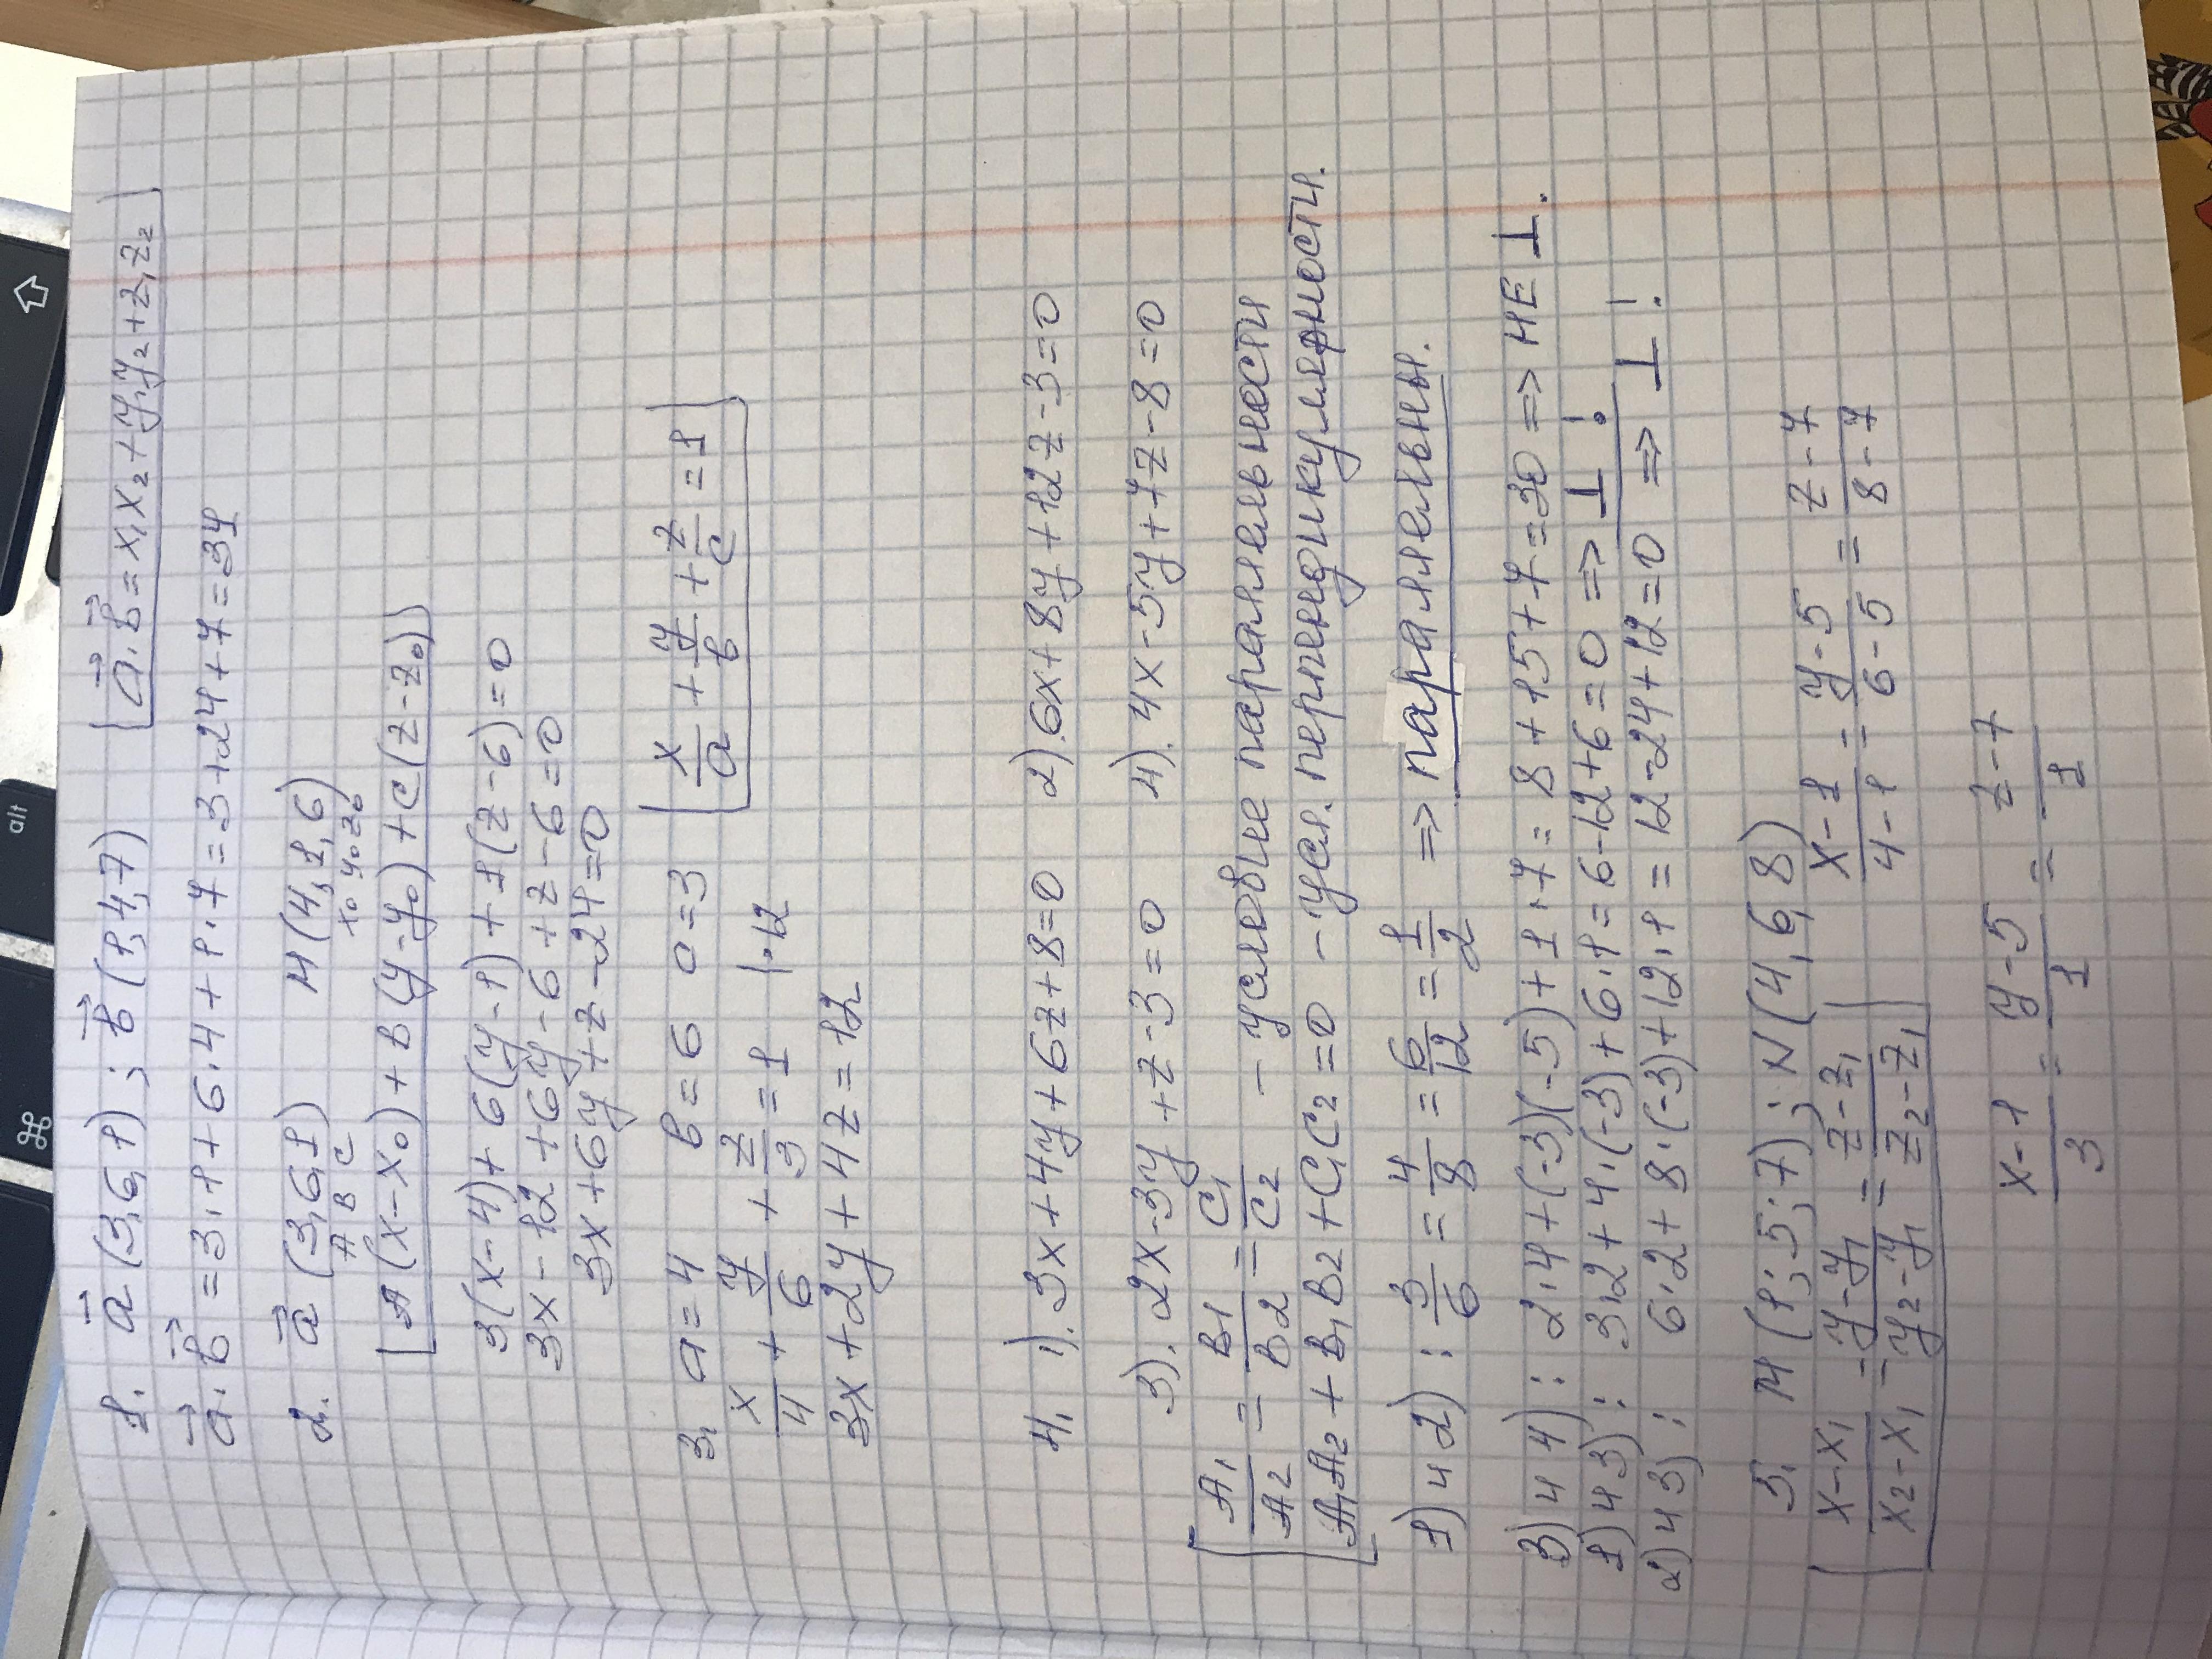 1. a⃗ (3,6,1) ; b⃗ (1,4,7) a⃗·b⃗ = x₁x₂ + y₁y₂ + z₁z₂
a⃗·b⃗ = 3·1 + 6·4 + 1·7 = 3+24+7 = 34
2. a⃗ (3,6,1) M (4,1,6)
A B C x₀ y₀ z₀
A(x-x₀) + B(y-y₀) + C(z-z₀)
3(x-4) + 6(y-1) + 1(z-6) = 0
3x - 12 + 6y - 6 + z - 6 = 0
3x + 6y + z - 24 = 0
3. a = 4 b = 6 c = 3 x/a + y/b + z/c = 1
x/4 + y/6 + z/3 = 1 |·12
3x + 2y + 4z = 12
4. 1). 3x + 4y + 6z + 8 = 0 2). 6x + 8y + 12z - 3 = 0
3). 2x - 3y + z - 3 = 0 4). 4x - 5y + 7z - 8 = 0
A₁/A₂ = B₁/B₂ = C₁/C₂ - условие паралельности
A₁A₂ + B₁B₂ + C₁C₂ = 0 - усл. перпендикулярности.
1) и 2) : 3/6 = 4/8 = 6/12 = 1/2 => паралельны.
3) и 4) : 2·4 + (-3)(-5) + 1·7 = 8 + 15 + 7 = 30 => НЕ ⊥.
1) и 3) : 3·2 + 4·(-3) + 6·1 = 6 - 12 + 6 = 0 => ⊥ !
2) и 3) : 6·2 + 8·(-3) + 12·1 = 12 - 24 + 12 = 0 => ⊥ !
5. M (1; 5; 7) ; N (4, 6, 8)
x-x₁/x₂-x₁ = y-y₁/y₂-y₁ = z-z₁/z₂-z₁ x-1/4-1 = y-5/6-5 = z-7/8-7
x-1/3 = y-5/1 = z-7/1
alt
⌘